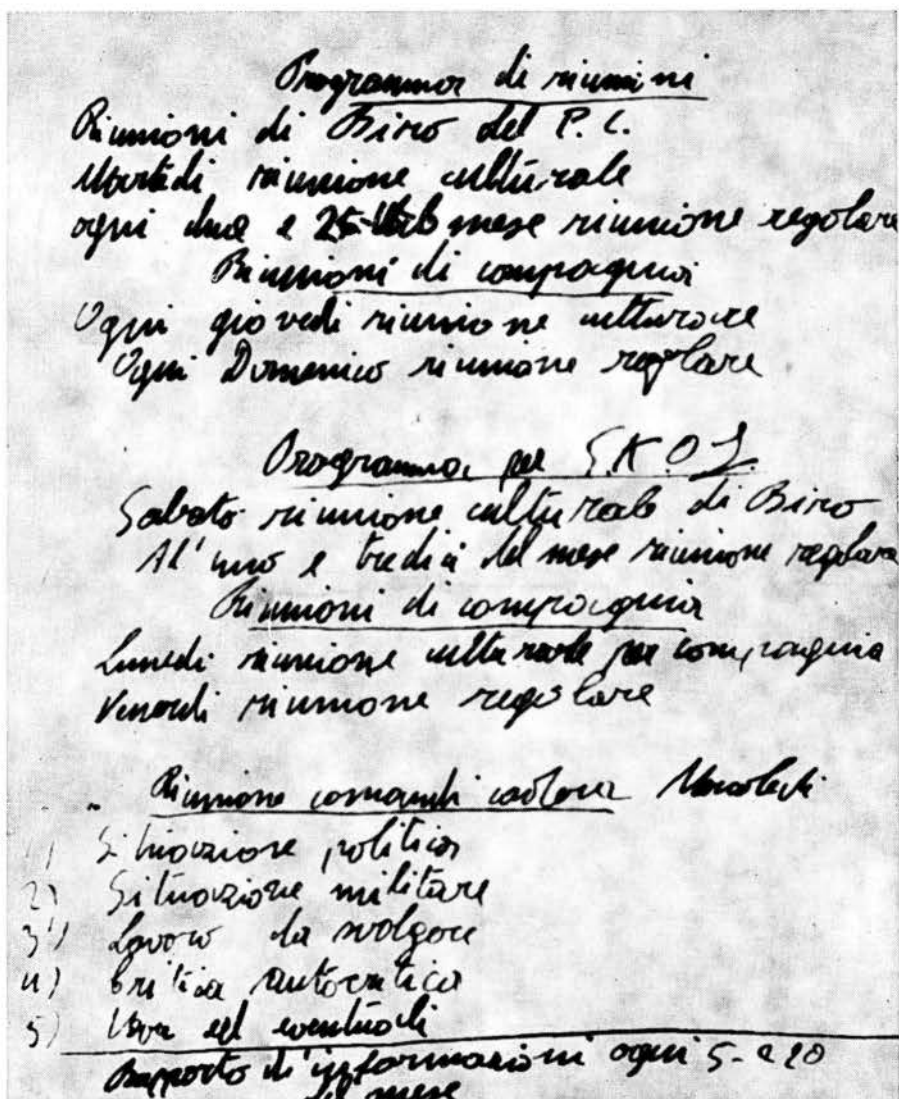 Programma di riunioni
Riunioni di Biro del P. C.
Martedi riunione culturale
ogni due e 25 mese riunione regolare
Riunioni di compagnia
Ogni giovedi riunione culturale
Ogni Domenica riunione regolare
Programma per S.K.O.J.
Sabato riunione culturale di Biro
Al'uno e tredici del mese riunione regolare
Riunioni di compagnia
Lunedi riunione culturale per compagnia
Venerdi riunione regolare
Riunione comandi Mercoledi
1) Situazione politica
2) Situazione militare
3) Lavoro da svolgere
4) Critica autocritica
5) Varie ed eventuali
Rapporto d'informazioni ogni 5 - e 20
del mese